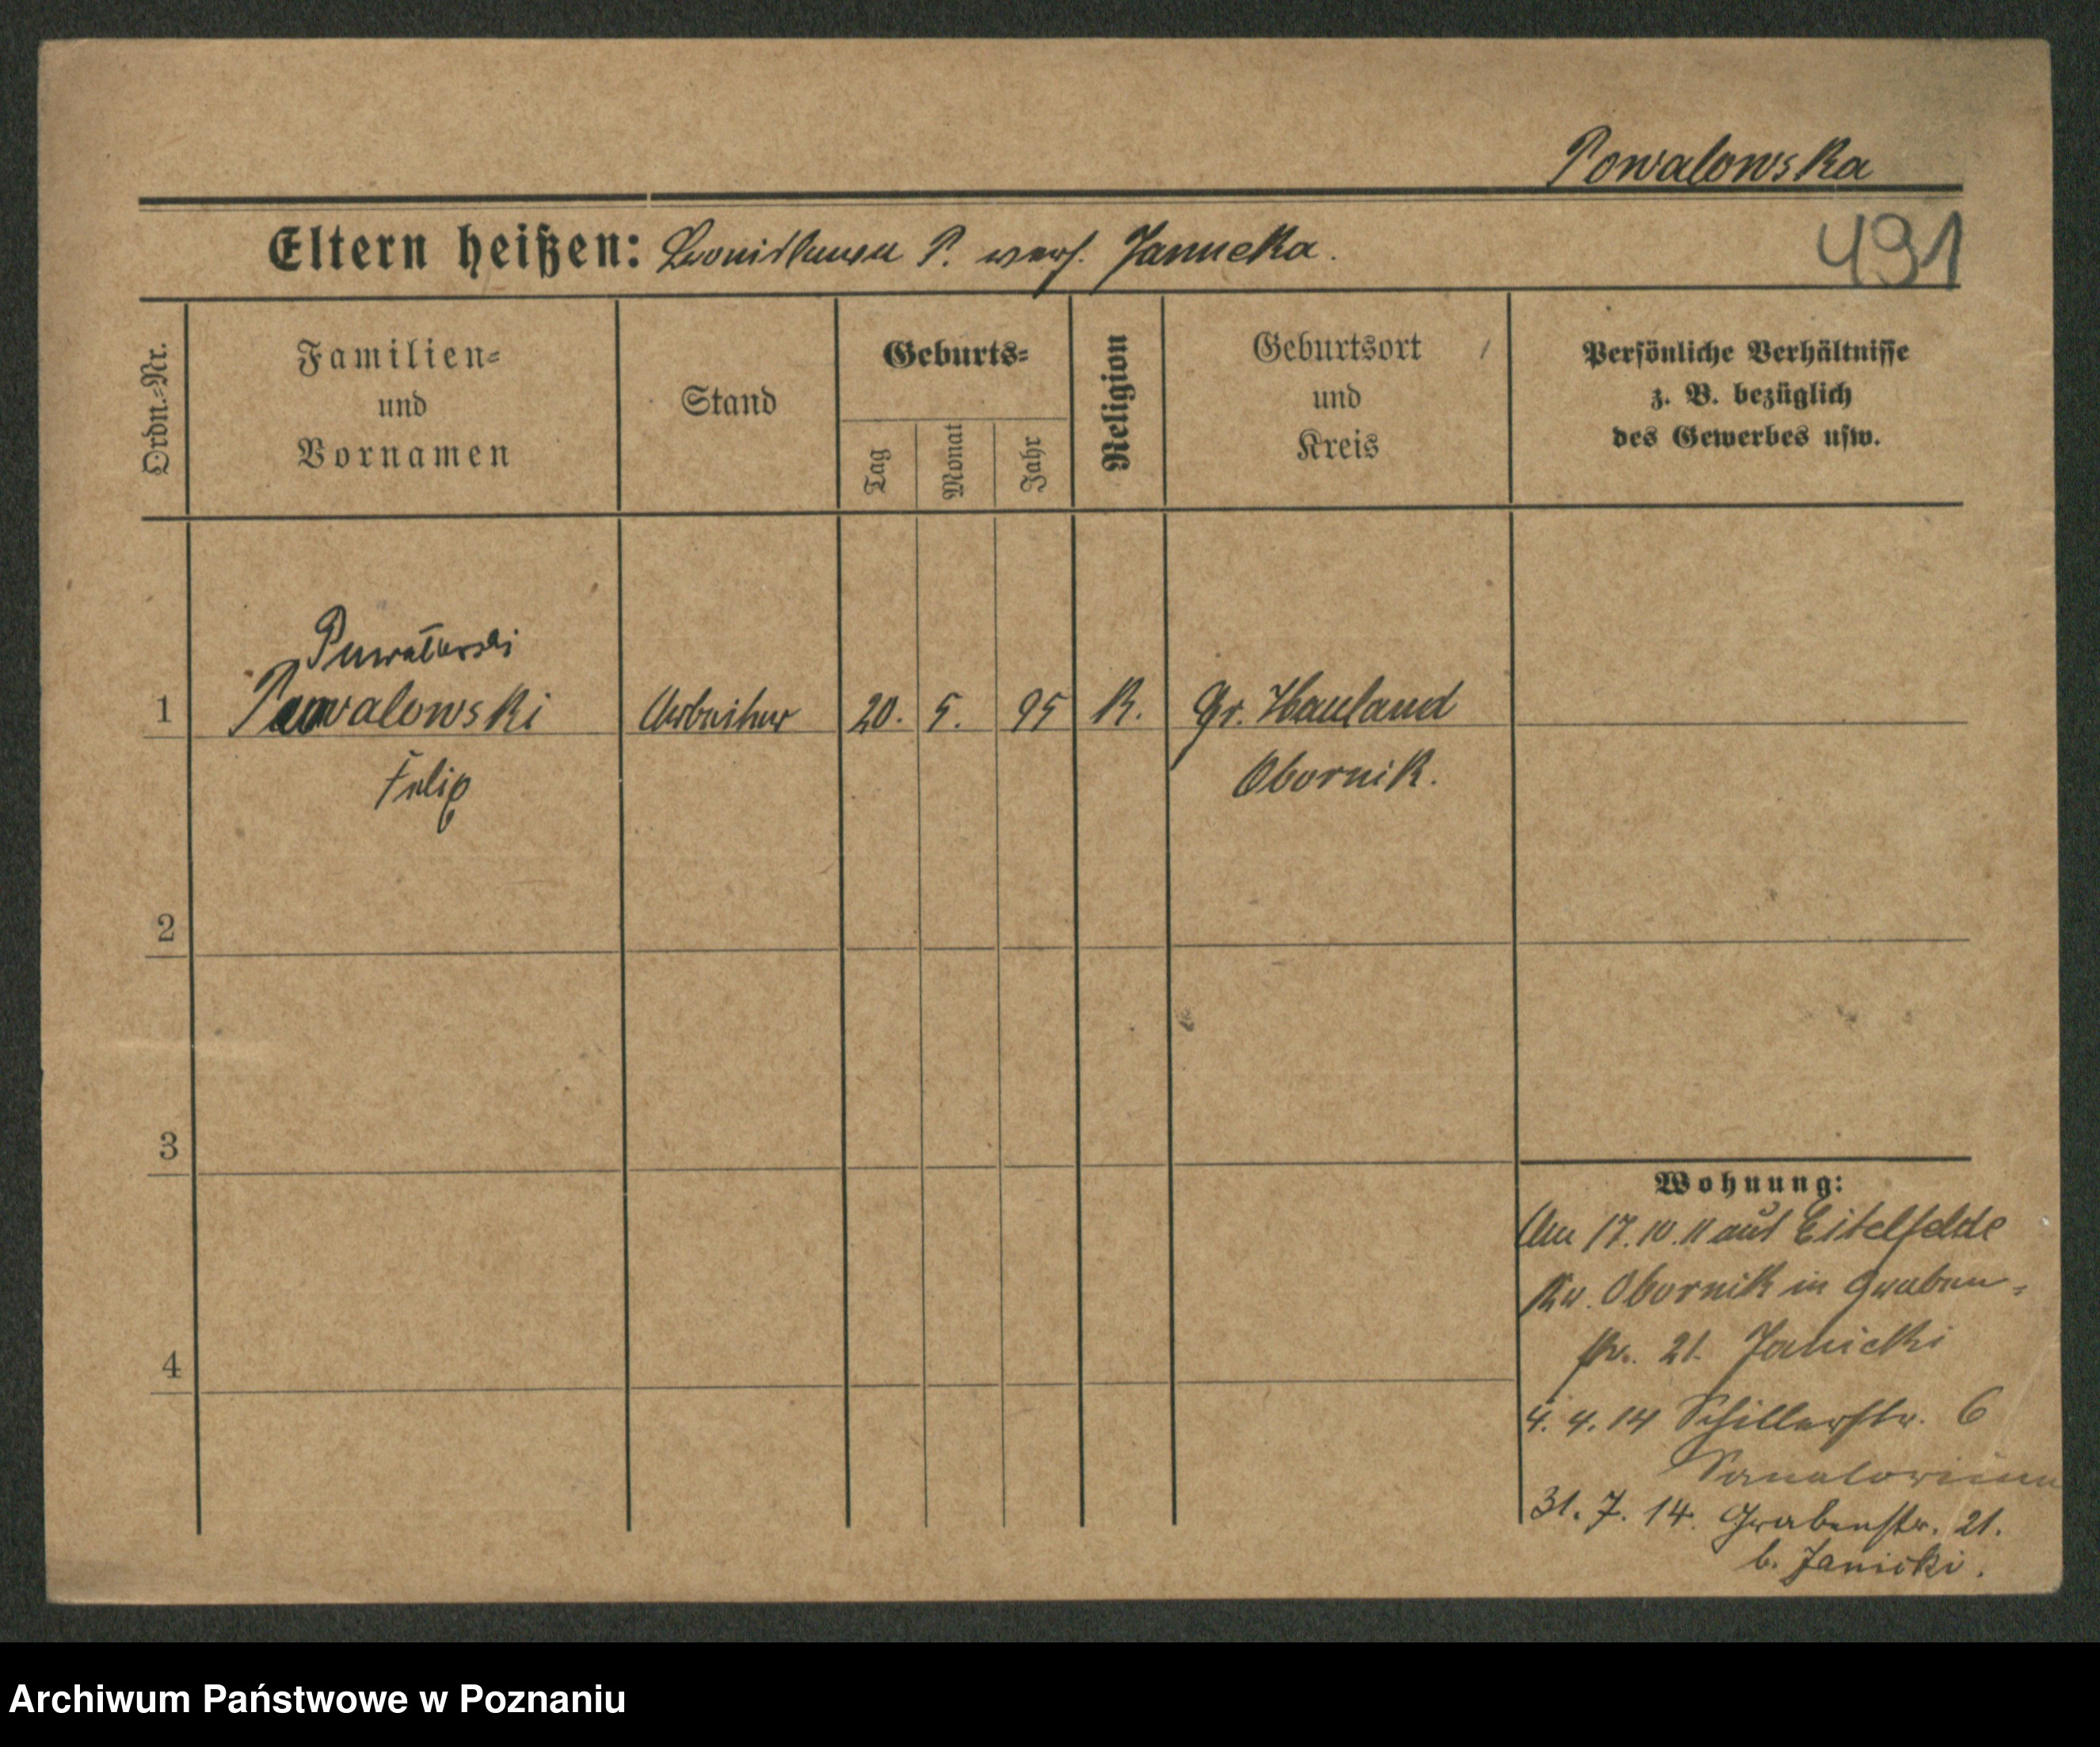 Powalowska
Eltern heißen: P. Janicka.
491
Ordn.-Nr.
Familien-
und
Vornamen
Stand
Geburts-
Tag
Monat
Jahr
Religion
Geburtsort
und
Kreis
Persönliche Verhältnisse
z. B. bezüglich
des Gewerbes usw.
1 Powalowski Arbeiter 20. 5. 95 K. Gr. Hauland
Obornik.
2
3
4
Wohnung:
17.10.11 aus Eitelfelde
Kr. Obornik in Graben-
str. 21. Janicki
4. 4. 14 Schillerstr. 6
Sanatorium
31. 7. 14. Grabenstr. 21.
b. Janicki.
Archiwum Państwowe w Poznaniu